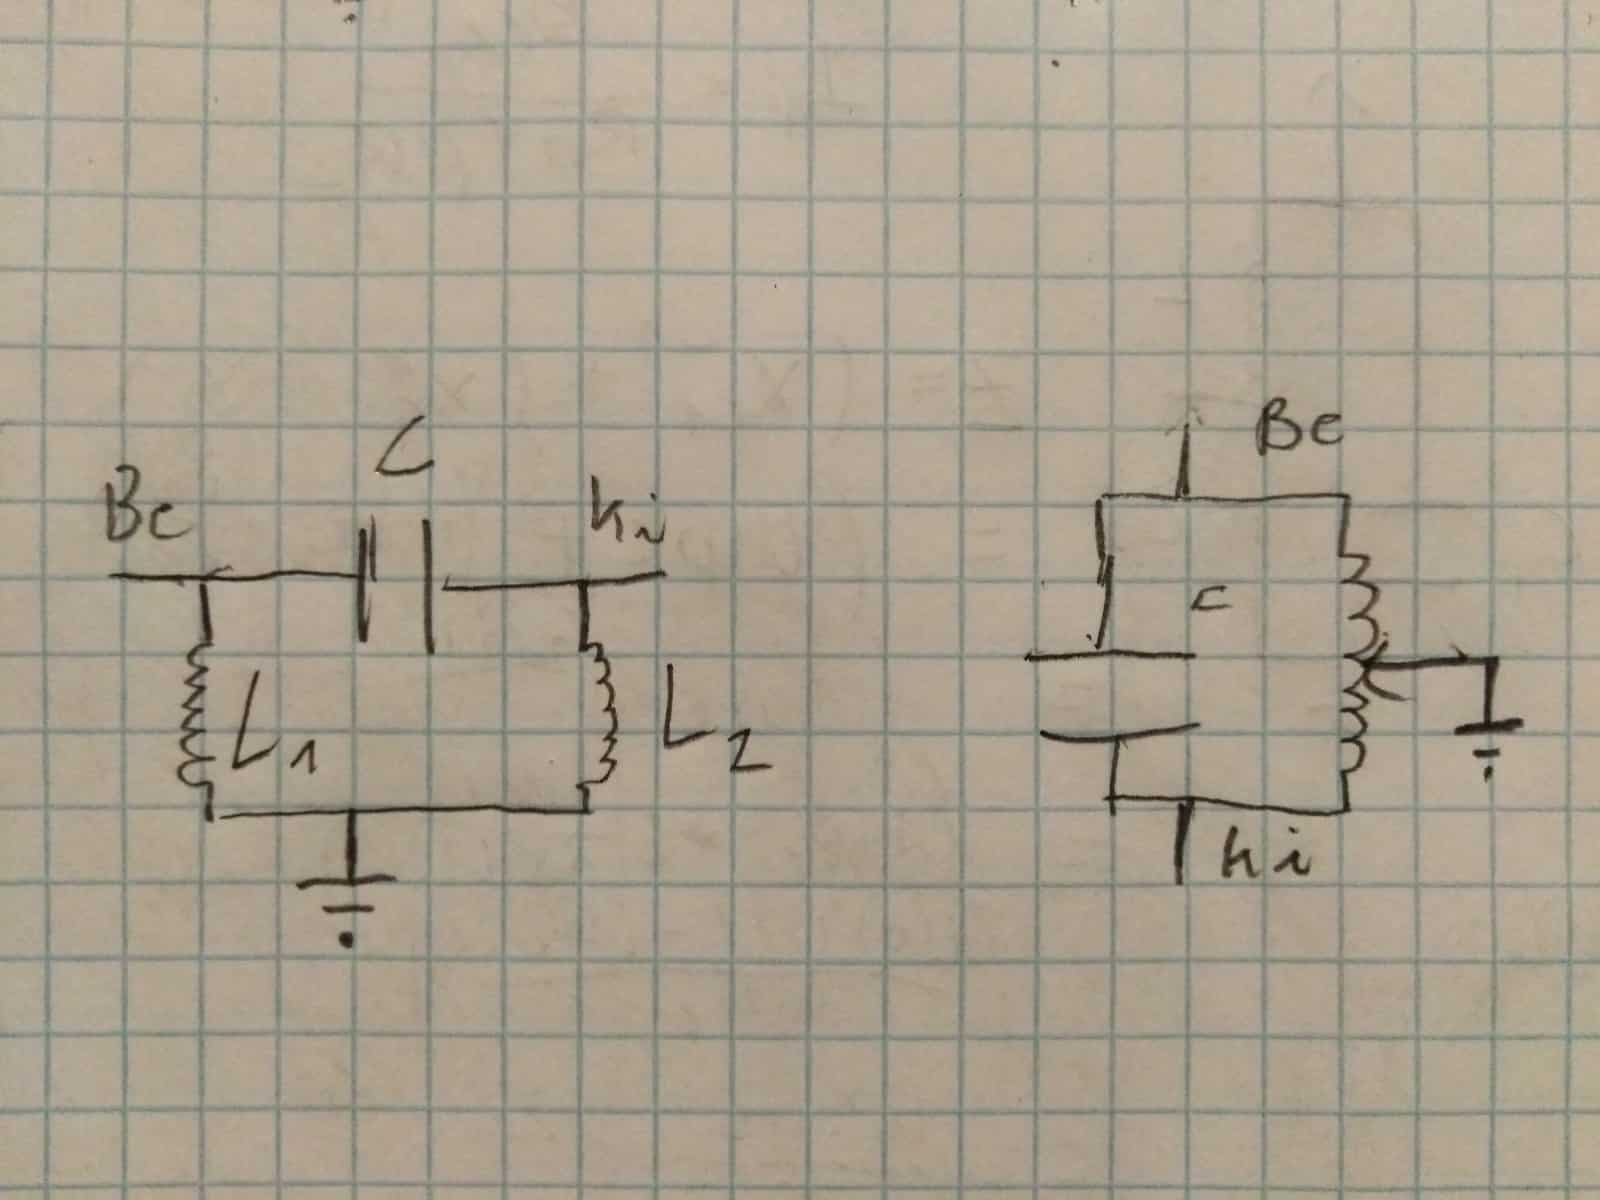 C
Be
Ki
L1
L2
Be
C
Ki